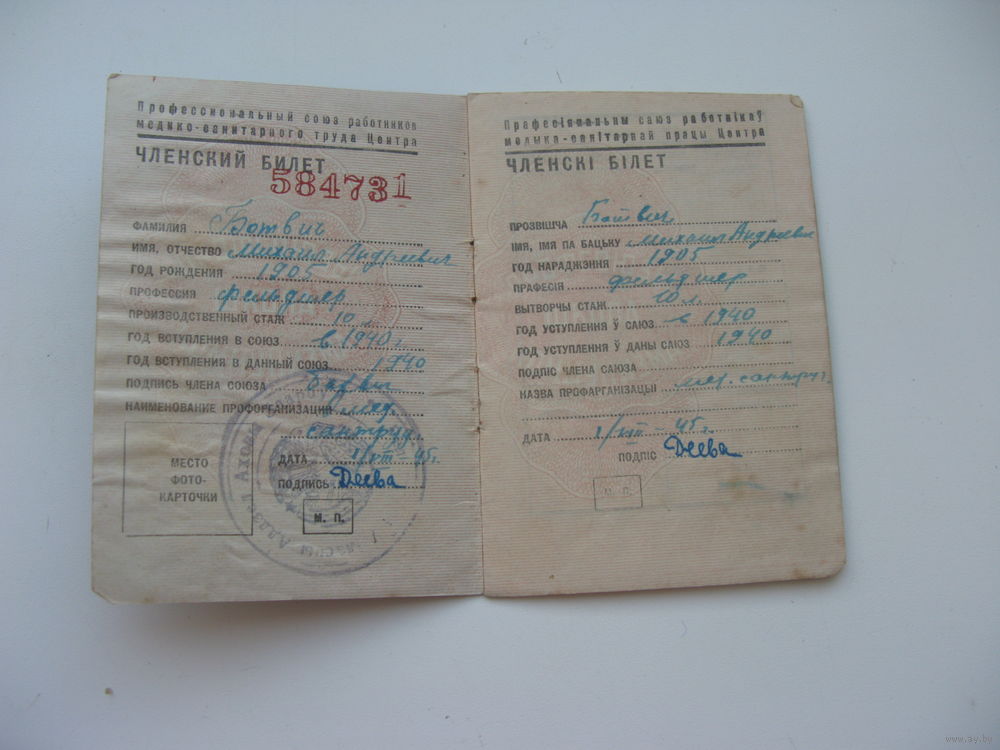 Профессиональный союз работников
медико-санитарного труда Центра
ЧЛЕНСКИЙ БИЛЕТ
584731
ФАМИЛИЯ Ботвич
ИМЯ, ОТЧЕСТВО Михаил Андреевич
ГОД РОЖДЕНИЯ 1905
ПРОФЕССИЯ фельдшер
ПРОИЗВОДСТВЕННЫЙ СТАЖ 10 л.
ГОД ВСТУПЛЕНИЯ В СОЮЗ в 1940 г
ГОД ВСТУПЛЕНИЯ В ДАННЫЙ СОЮЗ 1940
ПОДПИСЬ ЧЛЕНА СОЮЗА
НАИМЕНОВАНИЕ ПРОФОРГАНИЗАЦИИ Мед.
сантруд
ДАТА 1/VIII - 45 г.
ПОДПИСЬ Деева
МЕСТО
ФОТО-
КАРТОЧКИ
М. П.
Аддзел Аховы
Прафесіянальны саюз работнікаў
медыка-санітарнай працы Центра
ЧЛЕНСКІ БІЛЕТ
ПРОЗВІШЧА Ботвич
ІМЯ, ІМЯ ПА БАЦЬКУ Михаил Андреевич
ГОД НАРАДЖЭННЯ 1905
ПРАФЕСІЯ фельдшер
ВЫТВОРЧЫ СТАЖ 10 л.
ГОД УСТУПЛЕННЯ Ў САЮЗ в 1940
ГОД УСТУПЛЕННЯ Ў ДАНЫ САЮЗ 1940
ПОДПІС ЧЛЕНА САЮЗА
НАЗВА ПРОФАРГАНІЗАЦЫІ мед. сантруд
ДАТА 1/VIII - 45 г.
ПОДПІС Деева
М. П.
www.ay.by